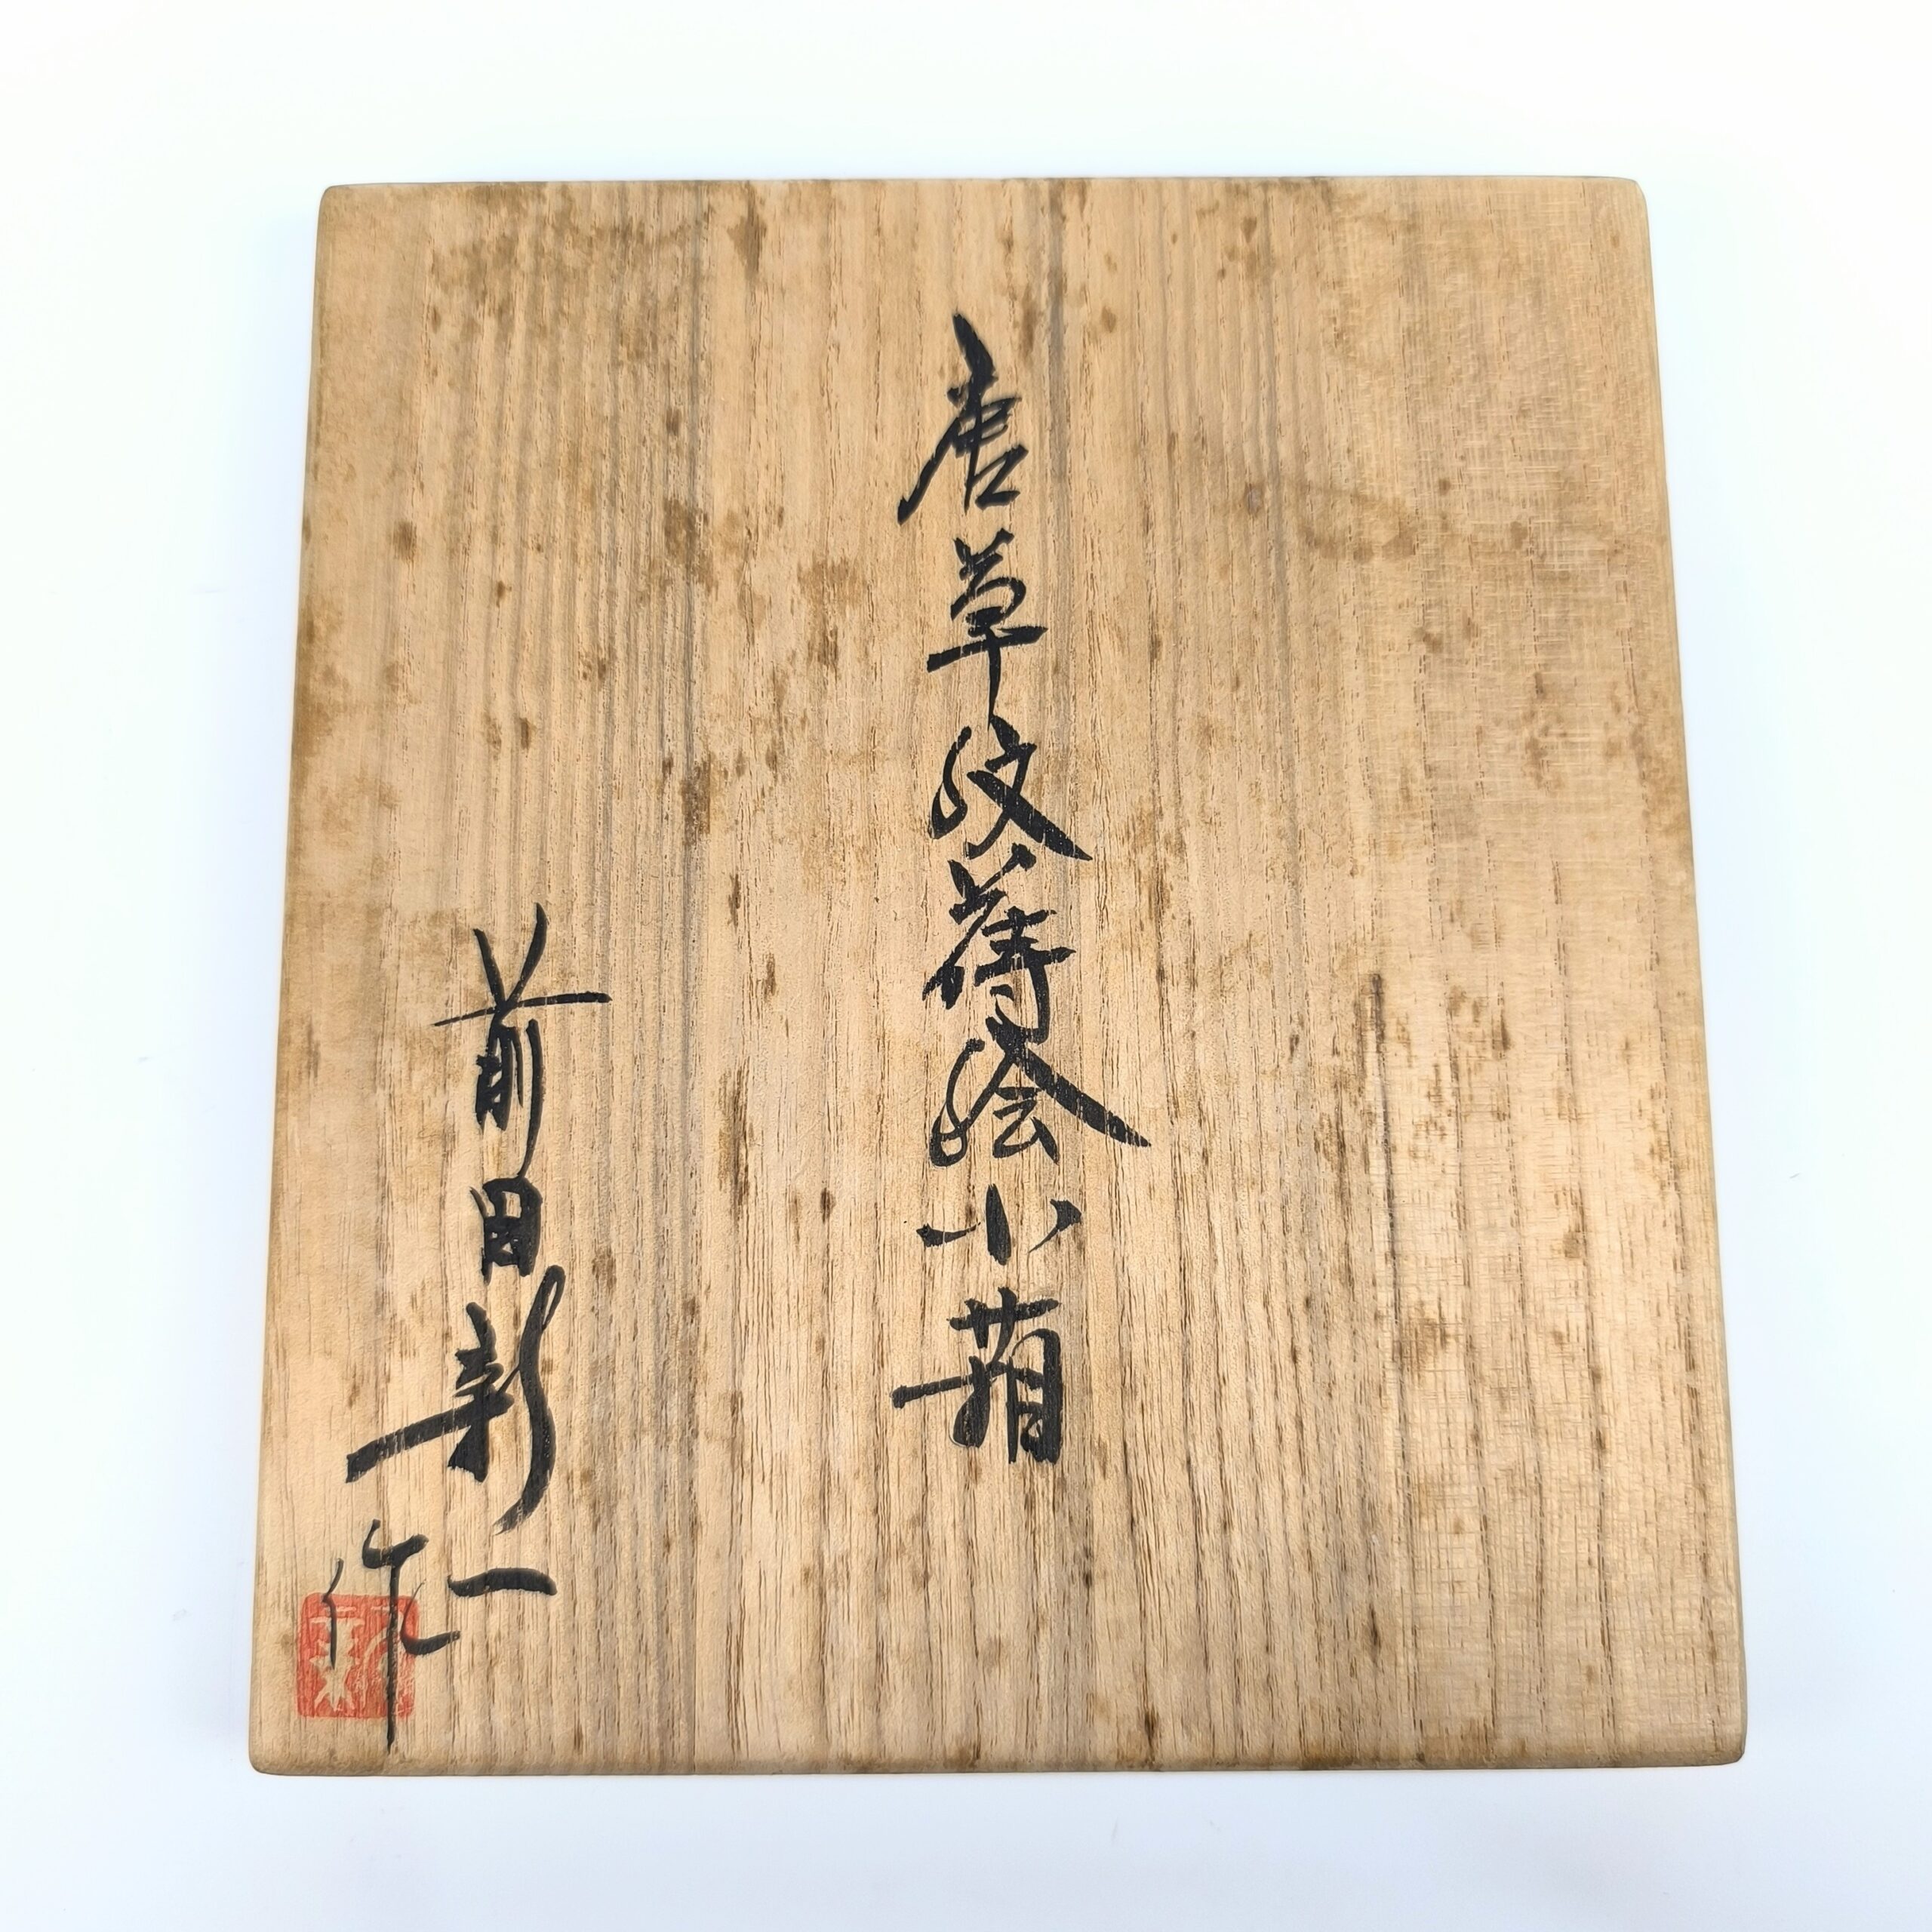 唐草紋蒔絵小箱
前田新一
作